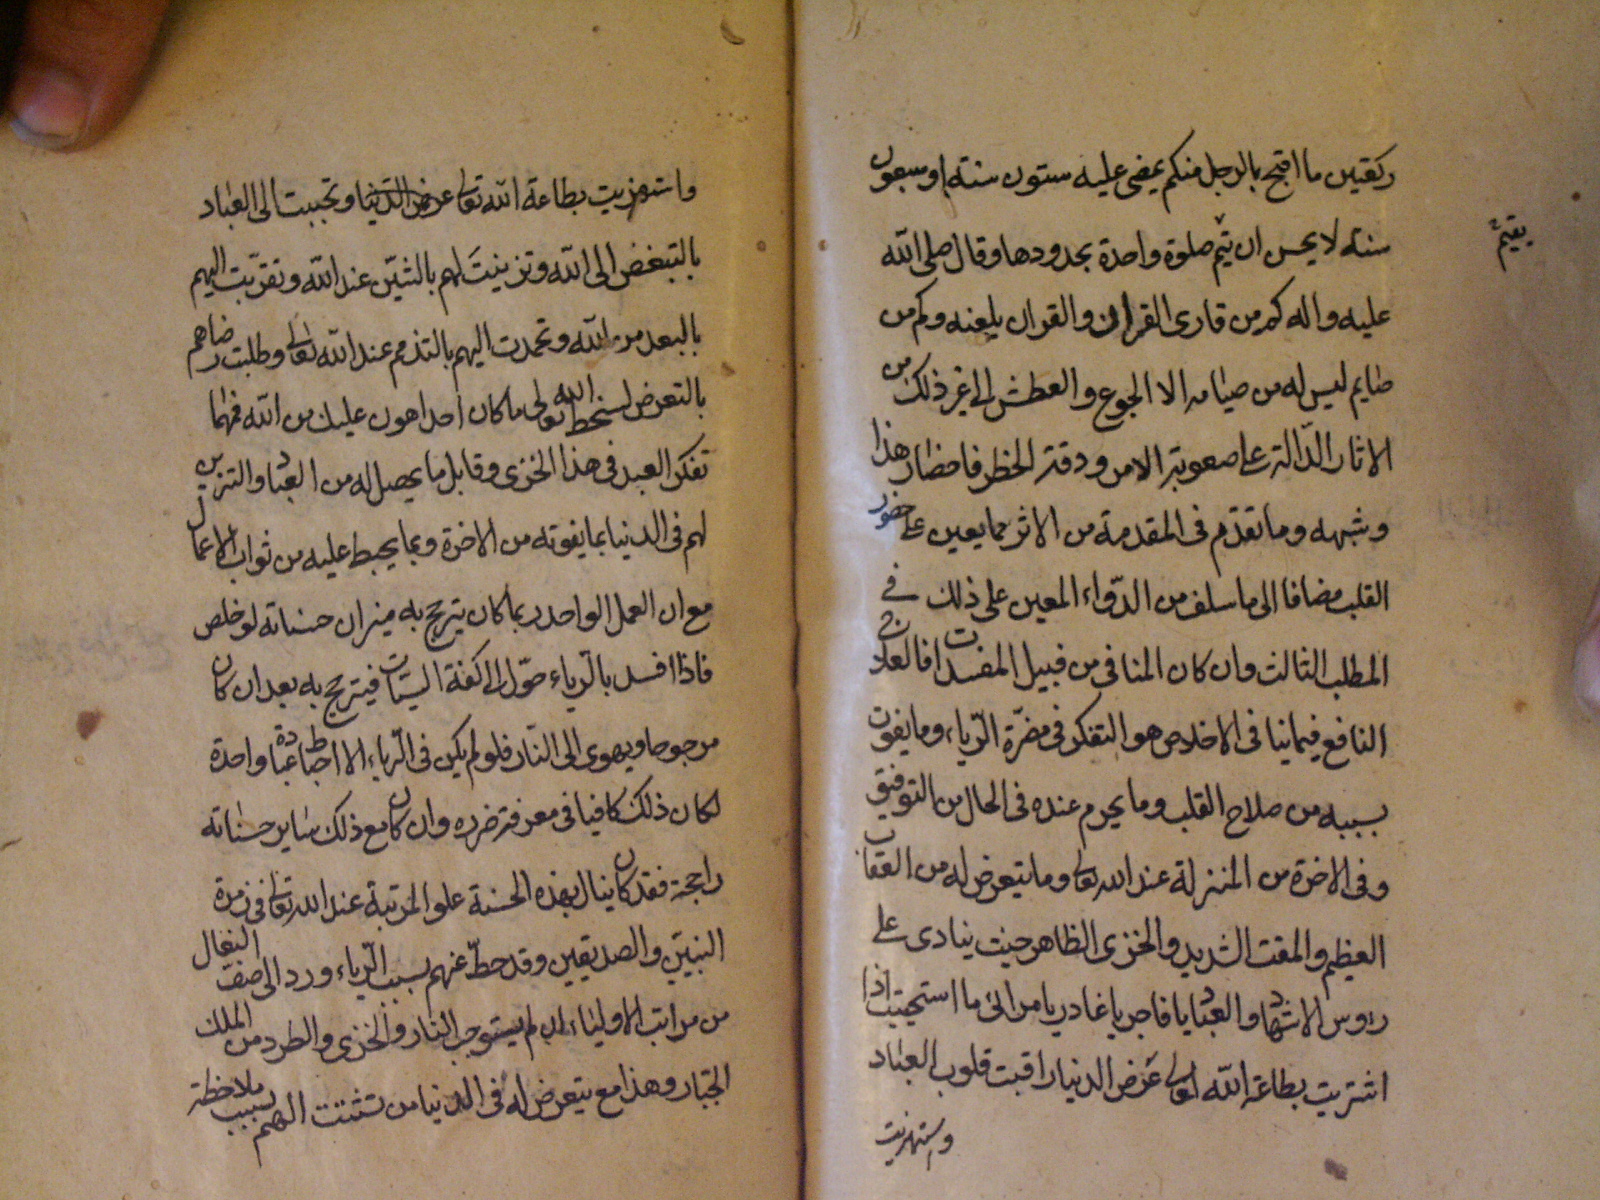 ركعتين ما اقبح بالرجل منكم يمضى عليه ستون سنة او سبعون
سنة لا يحسن ان يتم صلوة واحدة بحدودها وقال صلى الله
يقيم
عليه واله كم من قارئ القران والقران يلعنه وكم من
صايم ليس له من صيامه الا الجوع والعطش الى غير ذلك من
الاثار الدّالة على صعوبة الامر ودقة الخطر فاحضار هذا
وشبهه وما تقدّم فى المقدمة من الاثر مما يعين على حضور
القلب مضافا الى ما سلف من الدّواء المعين على ذلك فى
المطلب الثالث وان كان المنافى من قبيل المفسدات فالعلاج
النافع فيما ينافى الاخلاص هو التفكر فى مضرّة الرّياء وما يفوت
بسببه من صلاح القلب وما يحرم عنده فى الحال من التوفيق
وفى الاخرة من المنزلة عند الله تعالى وما يتعرض له من العقاب
العظيم والمقت الشديد والخزى الظاهر حيث ينادى على
رءوس الاشهاد والعباد يا فاجر يا غادر يا مرائى ما استحييت اذا
اشتريت بطاعة الله تعالى عرض الدنيا راقبت قلوب العباد
واستهزيت
واستهزيت بطاعة الله تعالى عرض الدّنيا وتحببت الى العباد
بالتبغض الى الله وتزينتَ لهم بالشّين عند الله وتقرّبت اليهم
بالبعد من الله وتحمدت اليهم بالتذمم عند الله تعالى وطلبت رضاهم
بالتعرض لسخط الله تعالى ما كان احد اهون عليك من الله فمهما
تفكر العبد فى هذا الخزى وقابل ما يحصل له من العباد والتزين
لهم فى الدنيا بما يفوته من الاخرة وبما يحبط عليه من ثواب الاعمال
مع ان العمل الواحد ربما كان يترجح به ميزان حسناته لو خلص
فاذا افسد بالرّياء حوّل الى كفة السيّئات فيترجح به بعد ان كان
مرجوحا ويهوى الى النّار فلو لم يكن فى الرّياء الا احباط عبادة واحدة
لكان ذلك كافيا فى معرفة ضرره وان كان مع ذلك ساير حسناته
راجحة فقد كان ينال بهذه الحسنة علو المرتبة عند الله تعالى فى زمرة
النبيّين والصديقين وقد حطّ عنهم بسبب الرّياء ورد الى صف النعال
من مراتب الاولياء لم يستوجب النار والخزى والطرد من الملك
الجبّار وهذا مع يتعرض له فى الدنيا من تشتت الهم بسبب ملاحظة